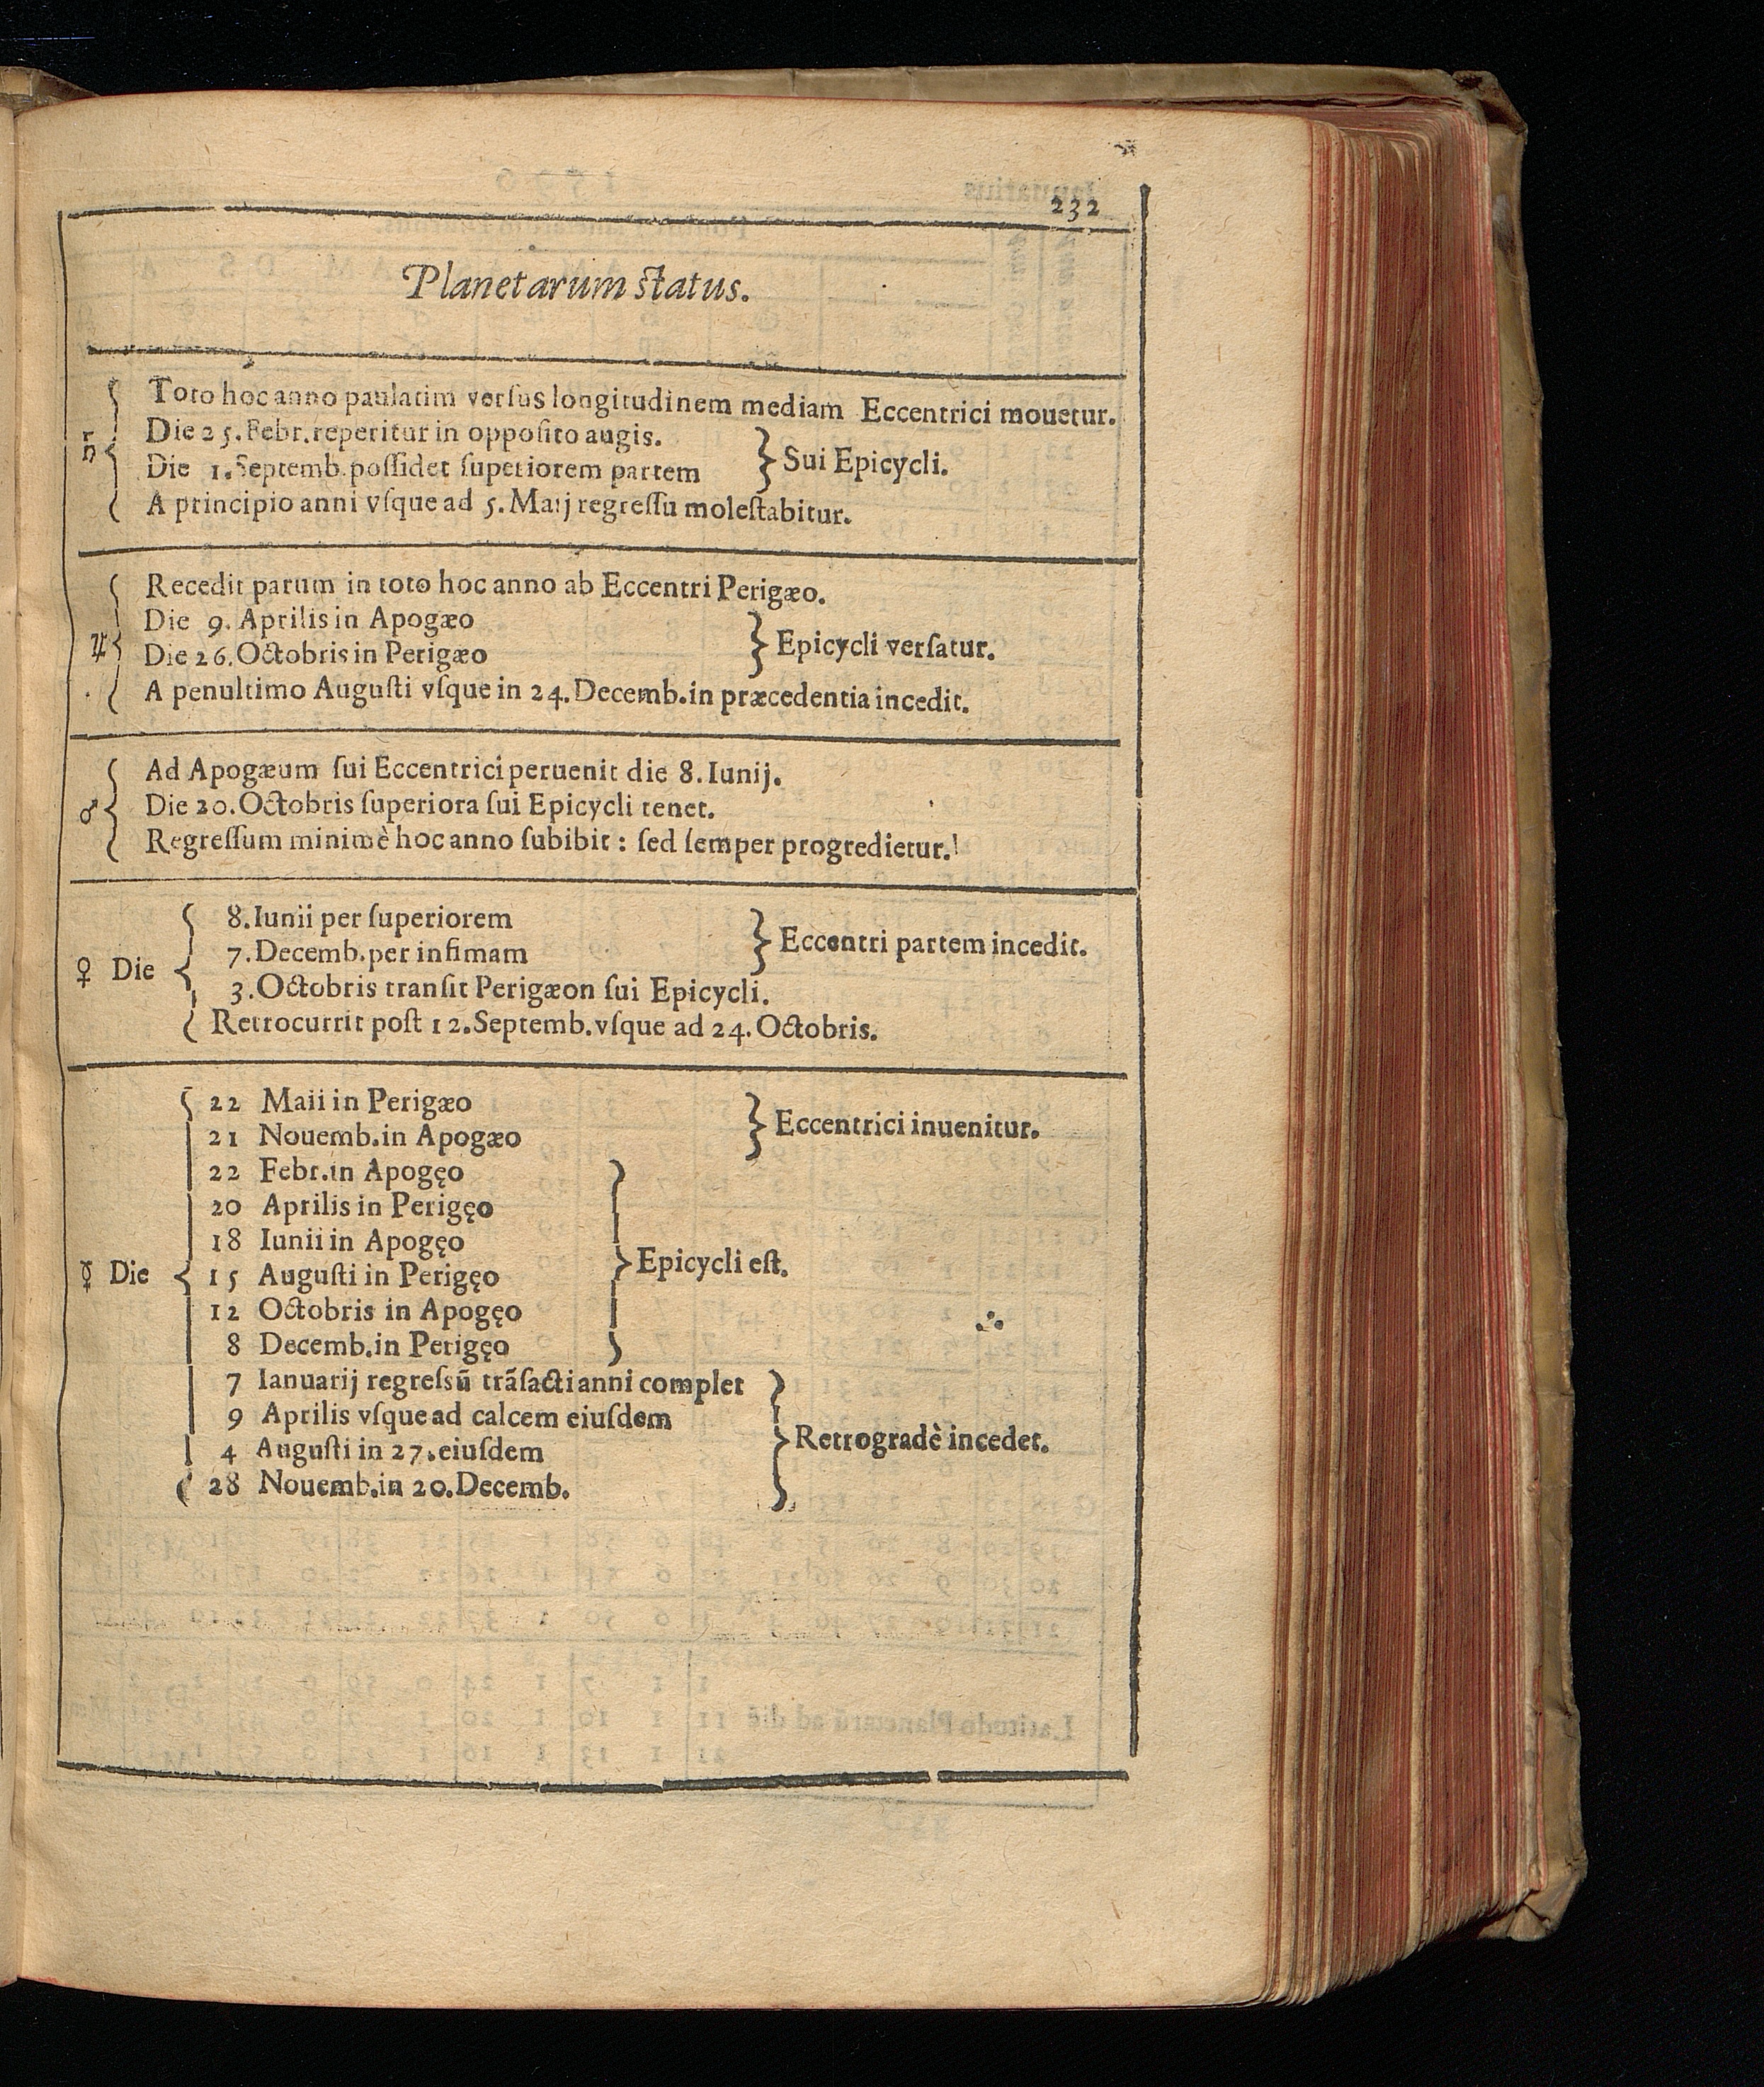 232
Planetarum ſtatus.
Toto hoc anno paulatim verſus longitudinem mediam Eccentrici mouetur.
Die 25. Febr. reperitur in oppoſito augis.
♄
Die 1. Septemb. poſſidet ſuperiorem partem
} Sui Epicycli.
A principio anni vſque ad 5. Maij regreſſu moleſtabitur.
Recedit parum in toto hoc anno ab Eccentri Perigæo.
Die 9. Aprilis in Apogæo
♃
Die 26. Octobris in Perigæo
} Epicycli verſatur.
A penultimo Auguſti vſque in 24. Decemb. in præcedentia incedit.
Ad Apogæum ſui Eccentrici peruenit die 8. Iunij.
♂ Die 20. Octobris ſuperiora ſui Epicycli tenet.
Regreſſum minimè hoc anno ſubibit: ſed ſemper progredietur.
8. Iunii per ſuperiorem
7. Decemb. per infimam
} Eccentri partem incedit.
♀ Die
3. Octobris tranſit Perigæon ſui Epicycli.
Retrocurrit poſt 12. Septemb. vſque ad 24. Octobris.
22 Maii in Perigæo
21 Nouemb. in Apogæo
} Eccentrici inuenitur.
22 Febr. in Apogęo
20 Aprilis in Perigęo
18 Iunii in Apogęo
☿ Die
15 Auguſti in Perigęo
} Epicycli eſt.
12 Octobris in Apogęo
8 Decemb. in Perigęo
7 Ianuarij regreſsū trāſacti anni complet
9 Aprilis vſque ad calcem eiuſdem
4 Auguſti in 27. eiuſdem
} Retrogradè incedet.
28 Nouemb. in 20. Decemb.